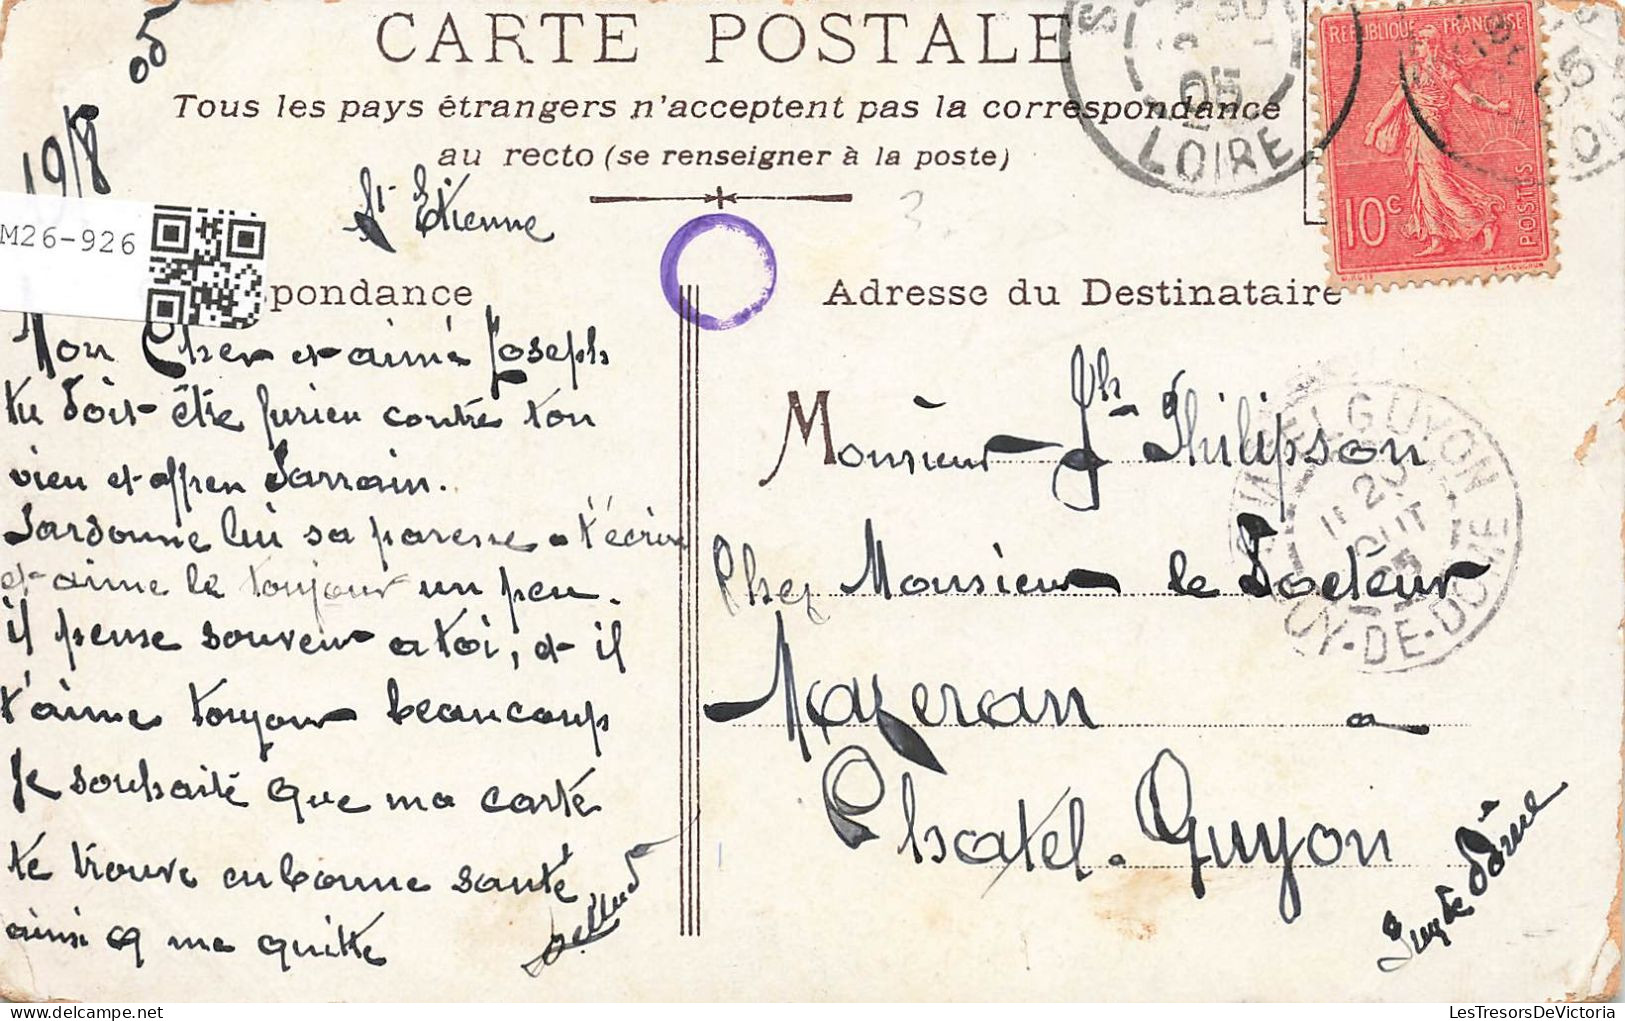 CARTE POSTALE
Tous les pays étrangers n'acceptent pas la correspondance
au recto (se renseigner à la poste)
19/8 05
St Etienne
M26-926
pondance
Adresse du Destinataire
RÉPUBLIQUE FRANÇAISE
10c
POSTES
05
LOIRE
Mon Cher et aimé Joseph
tu doit être furieu contre ton
vieu et affreu Parrain.
Pardonne lui sa paresse a t'écrire
et aime le toujour un peu.
il pense souvent a toi, et il
t'aime toujour beaucoup
Je souhaite que ma carte
te trouve en bonne santé
ainsi q me quitte
Monsieur Jh Philipson
Chez Monsieur le Docteur
Mazeran a
Chatel-Guyon
Puy de Dôme
GUYON
PUY-DE-DOME
LesTresorsDeVictoria